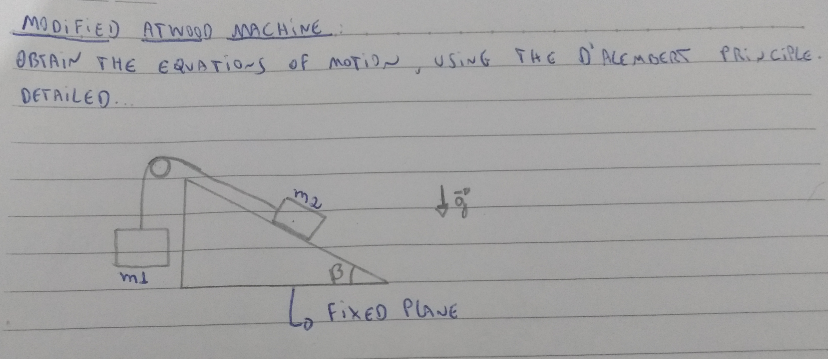 MODIFIED ATWOOD MACHINE:
OBTAIN THE EQUATIONS OF MOTION, USING THE D'ALEMBERT PRINCIPLE.
DETAILED...
m2
g
m1
β
FIXED PLANE